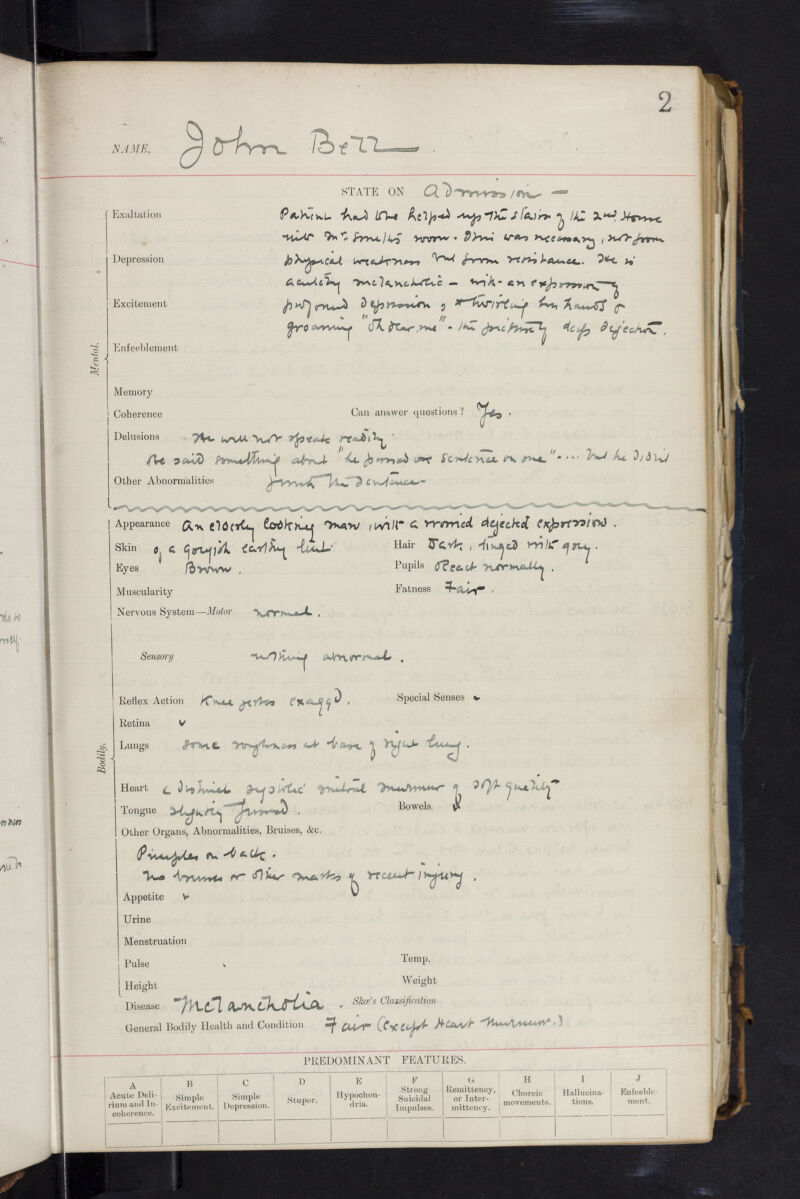 2
NAME, John Bell
STATE ON Admission —
Exaltation
Patient had to be helped up the stairs of the 2nd Home
into Mr. room. This was necessary, not from
Depression
physical weakness but from resistance. He is
acutely melancholic – with an expression of
Excitement
profound depression, twirling his hands &
groaning "Oh dear me" – the picture of deep dejection.
Mental.
Enfeeblement
Memory
Coherence Can answer questions? Yes.
Delusions He will not speak readily.
He said something about "he passed one sentence on one" .... but he didn't
Other Abnormalities finish the sentence –
Appearance An elderly looking man, with a worried dejected expression.
Skin of a greyish earthy tint Hair Dark, tinged with grey.
Eyes Brown. Pupils React normally.
Muscularity Fatness Fair.
Nervous System—Motor normal.
Sensory nothing abnormal.
Reflex Action Knee jerks exaggd. Special Senses
Retina
Bodily.
Lungs Some roughness at base of right lung.
Heart a distinct systolic mitral murmur of soft quality
Tongue slightly furred. Bowels
Other Organs, Abnormalities, Bruises, &c.
Pimples on back.
No bruises or other marks of recent injury.
Appetite
Urine
Menstruation
Pulse Temp.
Height Weight
Disease Melancholia. Skae's Classification
General Bodily Health and Condition Fair (except Heart murmur.)
PREDOMINANT FEATURES.
A B C D E F G H I J
Acute Delirium and Incoherence. Simple Excitement. Simple Depression. Stupor. Hypochondria. Strong Suicidal Impulses. Remittency, or Intermittency. Choreic movements. Hallucinations. Enfeeblement.